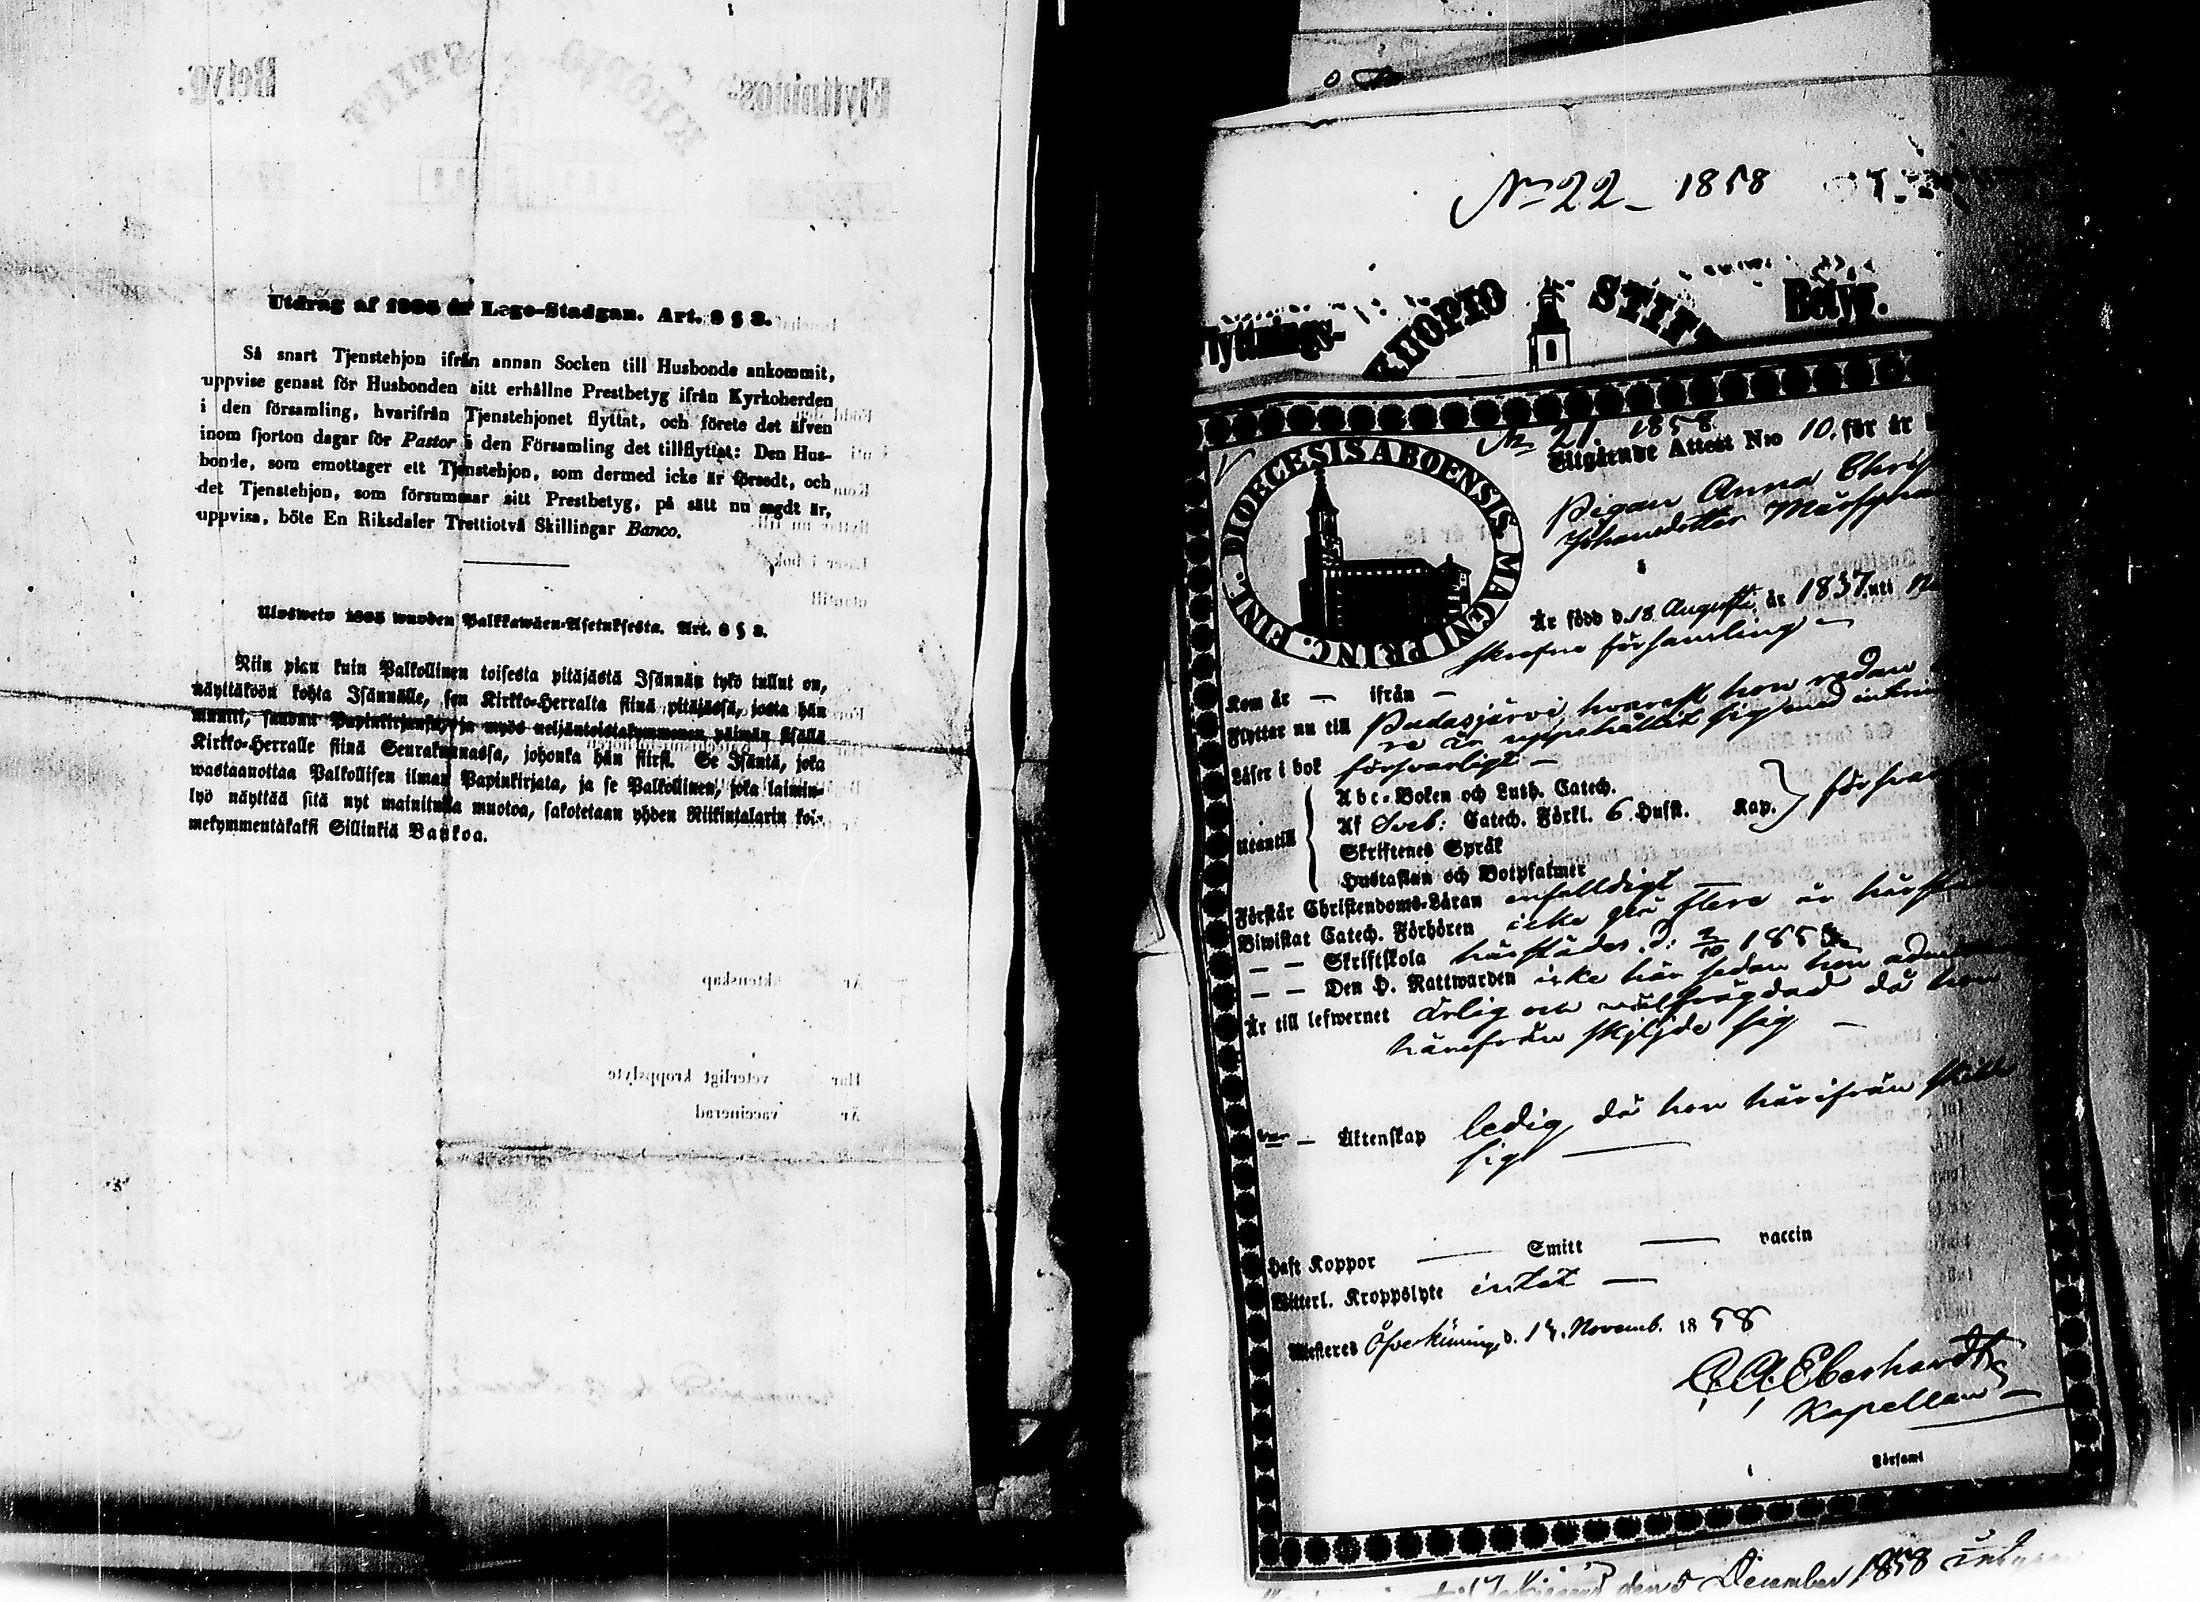 Utdrag af 1805 år Lego-Stadgan. Art. 8 § 2.
Så snart Tjenstehjon ifrån annan Socken till Husbonde ankommit,
uppvise genast för Husbonden sitt erhållne Prestbetyg ifrån Kyrkoherden
i den församling, hvarifrån Tjenstehjonet flyttat, och förete det äfven
inom fjorton dagar för Pastor i den Församling det tillflyttat: Den Hus-
bonde, som emottager ett Tjenstehjon, som dermed icke är försedt, och
det Tjenstehjon, som försummar sitt Prestbetyg, på sätt nu sagdt är,
uppvisa, böte En Riksdaler Trettiotvå Skillingar Banco.
Ulosweto 1805 wuoden Palkkawäen-Asetuksesta. Art. 8 § 2.
Niin pian kuin Palkollinen toisesta pitäjästä Isännän tykö tullut on,
näyttäköön kohta Isännälle, sen Kirkko-Herralta siinä pitäjässä, josta hän
muutti, saadun Papinkirjansa, ja myös neljäntoistakymmenen päiwän sisällä
Kirkko-Herralle siinä Seurakunnassa, johonka hän siirsi. Se Isäntä, joka
wastaanottaa Palkollisen ilman Papinkirjata, ja se Palkollinen, joka laimin-
lyö näyttää sitä nyt mainitulla muotoa, sakotetaan yhden Riikintalarin kol-
mekymmentäkaksi Sillinkiä Bankoa.
No 22 - 1858
Flyttnings- KUOPIO STIFT Betyg.
No 21 1858
DIOECESIS ABOENSIS MAGNI PRINC. FINL.
Utgående Attest N:o 10. för år
Pigan Anna
Johansdotter
Är född d. 18 Augusti år 1837. uti
församling –
Kom år – ifrån –
Flyttar nu till Pudasjärvi, hvarest hon redan
re år uppehållit sig med
Läser i bok försvarligt –
Abc-Boken och Luth. Catech.
Utantill Af Sveb: Catech. Förkl. 6 Hufst. Kap.
Skriftenes Språk
Hustaflan och Botpsalmer
Förstår Christendoms-Läran enfalldigt –
Biwistat Catech. Förhören icke på flere år
– – Skriftskola härstädes d: 2/10 185
– – Den H. Nattwarden icke här sedan hon
Är till lefwernet ärlig och välfrägdad då hon
härifrån skiljde sig –
– Äktenskap ledig, då hon härifrån skilde
sig –
Haft Koppor – Smitt – vaccin
Witterl. Kroppslyte intet –
Attesteres Öfverkiiming d. 14. Novemb. 1858
Eberhardt
Kapellan –
Församl
den 5 December 1858